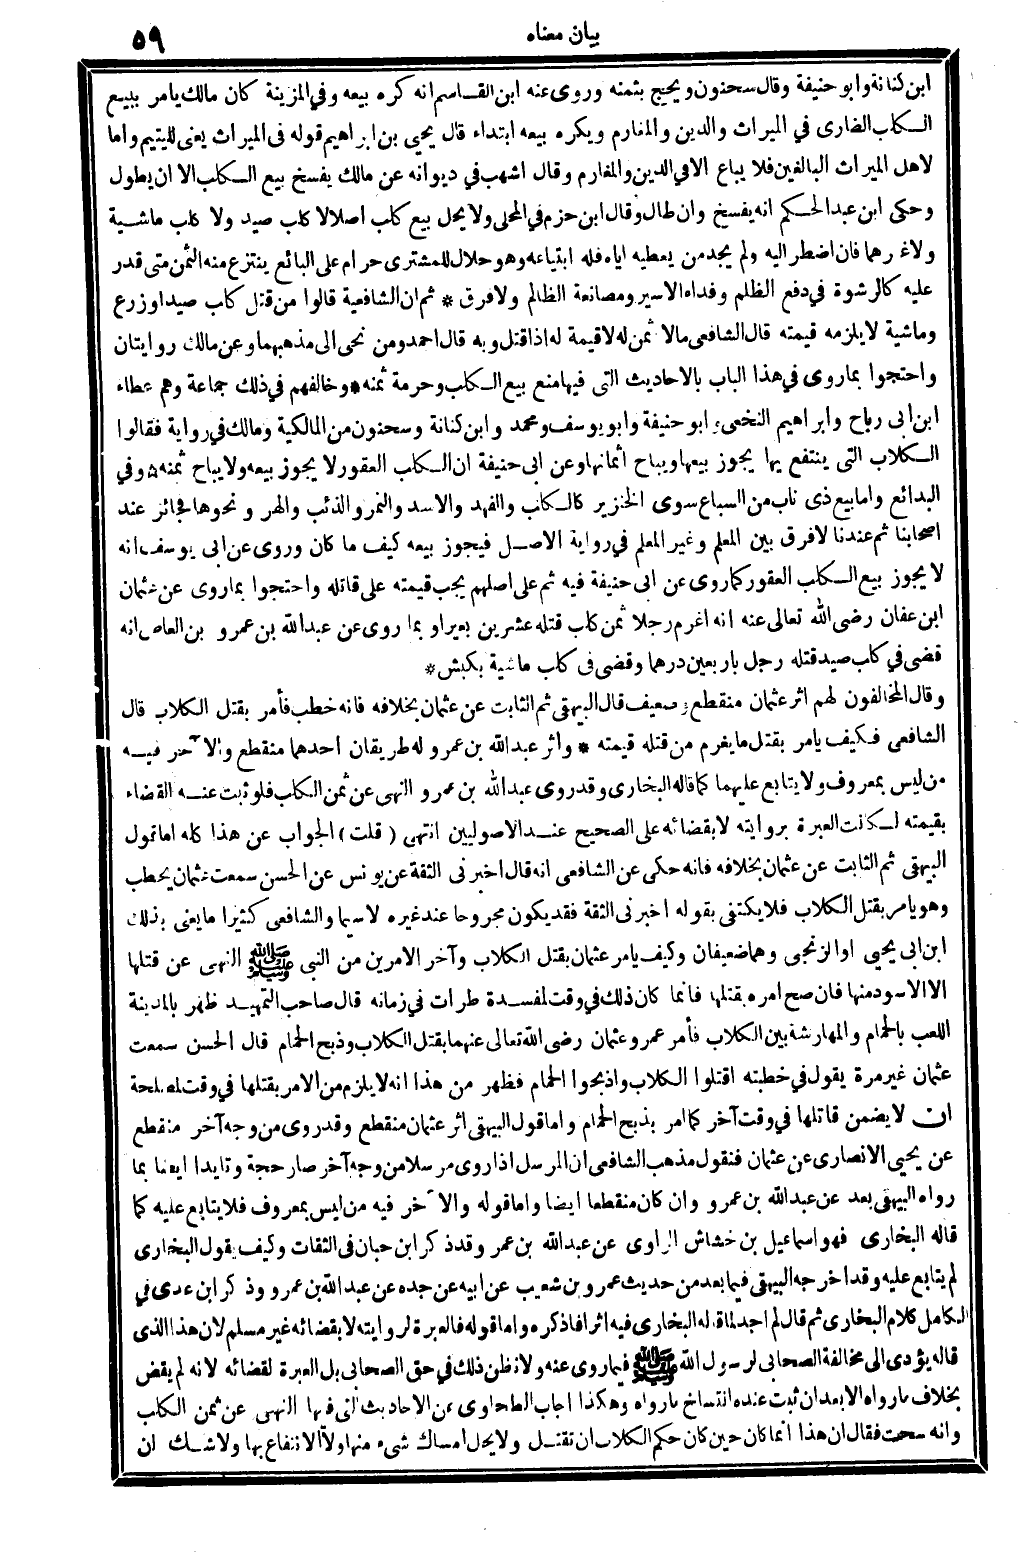 بيان معناه
٥٩
ابن كنانة وابو حنيفة وقال سحنون ويحج بثمنه وروى عنه ابن القاسم انه كره بيعه وفي المزينة كان مالك يامر ببيع
الكلب الضارى في الميراث والدين والمغارم ويكره بيعه ابتداء قال يحيى بن ابراهيم قوله فى الميراث يعنى لليتيم واما
لاهل الميراث البالغين فلا يباع الا في الدين والمغارم وقال اشهب في ديوانه عن مالك يفسخ بيع الكلب الا ان يطول
وحكى ابن عبد الحكم انه يفسخ وان طال وقال ابن حزم في المحلى ولا يحل بيع كلب اصلا لا كلب صيد ولا كلب ماشية
ولا غيرهما فان اضطر اليه ولم يجد من يعطيه اياه فله ابتياعه وهو حلال للمشترى حرام على البائع ينتزع منه الثمن متى قدر
عليه كالرشوة في دفع الظلم وفداء الاسير ومصانعة الظالم ولا فرق * ثم ان الشافعية قالوا من قتل كلب صيد او زرع
وماشية لا يلزمه قيمته قال الشافعى ما لا ثمن له لا قيمة له اذا قتل وبه قال احمد ومن نحى الى مذهبهما وعن مالك روايتان
واحتجوا بما روى في هذا الباب بالاحاديث التى فيها منع بيع الكلب وحرمة ثمنه * وخالفهم في ذلك جماعة وهم عطاء
ابن ابى رباح وابراهيم النخعى وابو حنيفة وابو يوسف ومحمد وابن كنانة وسحنون من المالكية ومالك في رواية فقالوا
الكلاب التى ينتفع بها يجوز بيعها ويباح أثمانها وعن ابى حنيفة ان الكلب العقور لا يجوز بيعه ولا يباح ثمنه * وفي
البدائع واما بيع ذى ناب من السباع سوى الخنزير كالكلب والفهد والاسد والنمر والذئب والهر ونحوها فجائز عند
اصحابنا ثم عندنا لا فرق بين المعلم وغير المعلم في رواية الاصل فيجوز بيعه كيف ما كان وروى عن ابى يوسف انه
لا يجوز بيع الكلب العقور كما روى عن ابى حنيفة فيه ثم على اصلهم يجب قيمته على قاتله واحتجوا بما روى عن عثمان
ابن عفان رضى الله تعالى عنه انه اغرم رجلا ثمن كلب قتله عشرين بعيرا وبما روى عن عبد الله بن عمرو بن العاص انه
قضى في كلب صيد قتله رجل باربعين درهما وقضى فى كلب ماشية بكبش *
وقال المخالفون لهم اثر عثمان منقطع وضعيف قال البيهقى ثم الثابت عن عثمان بخلافه فانه خطب فأمر بقتل الكلاب قال
الشافعى فكيف يامر بقتل ما يغرم من قتله قيمته * واثر عبد الله بن عمرو له طريقان احدهما منقطع والآخر فيه
من ليس بمعروف ولا يتابع عليهما كما قاله البخارى وقد روى عبد الله بن عمرو النهى عن ثمن الكلب فلو ثبت عنه القضاء
بقيمته لكانت العبرة بروايته لا بقضائه على الصحيح عند الاصوليين انتهى ( قلت ) الجواب عن هذا كله اما قول
البيهقى ثم الثابت عن عثمان بخلافه فانه حكى عن الشافعى انه قال اخبرنى الثقة عن يونس عن الحسن سمعت عثمان يخطب
وهو يامر بقتل الكلاب فلا يكتفى بقوله اخبرنى الثقة فقد يكون مجروحا عند غيره لا سيما والشافعى كثيرا ما يعنى بذلك
ابن ابى يحيى او الزنجى وهما ضعيفان وكيف يامر عثمان بقتل الكلاب وآخر الامرين من النبى ﷺ النهى عن قتلها
الا الاسود منها فان صح امره بقتلها فانما كان ذلك في وقت لمفسدة طرات في زمانه قال صاحب التمهيد ظهر بالمدينة
اللعب بالحمام والمهارشة بين الكلاب فأمر عمر وعثمان رضى الله تعالى عنهما بقتل الكلاب وذبح الحمام قال الحسن سمعت
عثمان غير مرة يقول في خطبته اقتلوا الكلاب واذبحوا الحمام فظهر من هذا انه لا يلزم من الامر بقتلها في وقت لمصلحة
ان لا يضمن قاتلها في وقت آخر كما امر بذبح الحمام واما قول البيهقى اثر عثمان منقطع وقد روى من وجه آخر منقطع
عن يحيى الانصارى عن عثمان فنقول مذهب الشافعى ان المرسل اذا روى مرسلا من وجه آخر صار حجة وتايدا ايضا بما
رواه البيهقى بعد عن عبد الله بن عمرو وان كان منقطعا ايضا واما قوله والآخر فيه من ليس بمعروف فلا يتابع عليه كما
قاله البخارى فهو اسماعيل بن خشاش الراوى عن عبد الله بن عمر وقد ذكر ابن حبان فى الثقات وكيف يقول البخارى
لم يتابع عليه وقد اخرجه البيهقى فيما بعد من حديث عمرو بن شعيب عن ابيه عن جده عن عبد الله بن عمرو وذكر ابن عدى في
الكامل كلام البخارى ثم قال لم اجد لما قاله البخارى فيه اثرا فاذكره واما قوله فالعبرة لروايته لا بقضائه غير مسلم لان هذا الذى
قاله يؤدى الى مخالفة الصحابى لرسول الله ﷺ فيما روى عنه ولا نظن ذلك في حق الصحابى بل العبرة لقضائه لانه لم يقض
بخلاف ما رواه الا بعد ان ثبت عنده انتساخ ما رواه وهكذا اجاب الطحاوى عن الاحاديث التى فيها النهى عن ثمن الكلب
وانه سحت فقال ان هذا انما كان حين كان حكم الكلاب ان تقتل ولا يحل امساك شىء منها ولا الانتفاع بها ولا شك ان